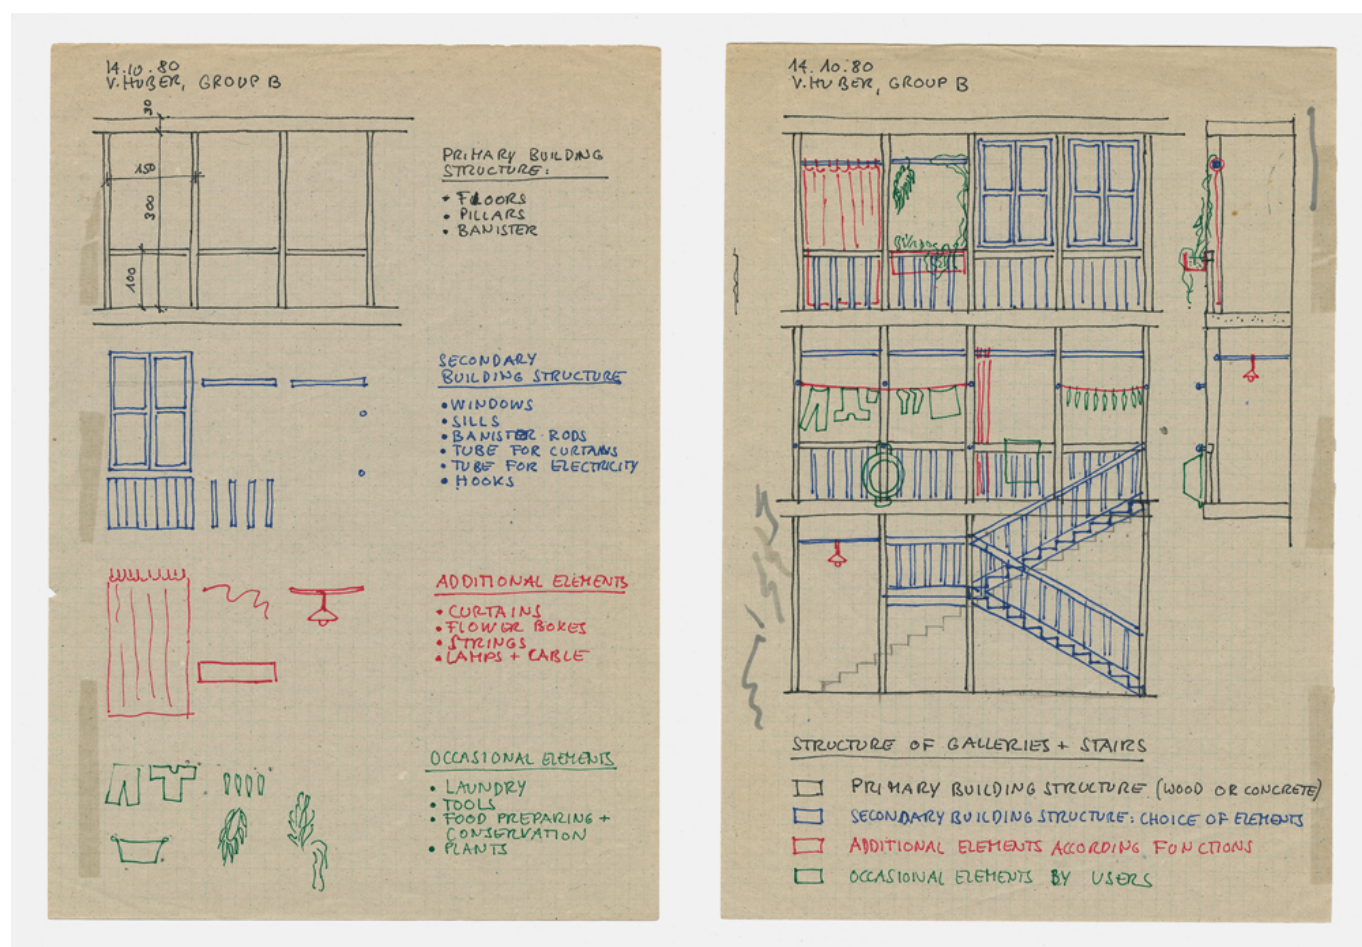 14.10.80
V. HUBER, GROUP B
30
150
300
100
PRIMARY BUILDING
STRUCTURE:
• FLOORS
• PILLARS
• BANISTER
SECONDARY
BUILDING STRUCTURE
• WINDOWS
• SILLS
• BANISTER RODS
• TUBE FOR CURTAINS
• TUBE FOR ELECTRICITY
• HOOKS
ADDITIONAL ELEMENTS
• CURTAINS
• FLOWER BOXES
• STRINGS
• LAMPS + CABLE
OCCASIONAL ELEMENTS
• LAUNDRY
• TOOLS
• FOOD PREPARING +
CONSERVATION
• PLANTS
14.10.80
V. HUBER, GROUP B
STRUCTURE OF GALLERIES + STAIRS
PRIMARY BUILDING STRUCTURE (WOOD OR CONCRETE)
SECONDARY BUILDING STRUCTURE: CHOICE OF ELEMENTS
ADDITIONAL ELEMENTS ACCORDING FUNCTIONS
OCCASIONAL ELEMENTS BY USERS